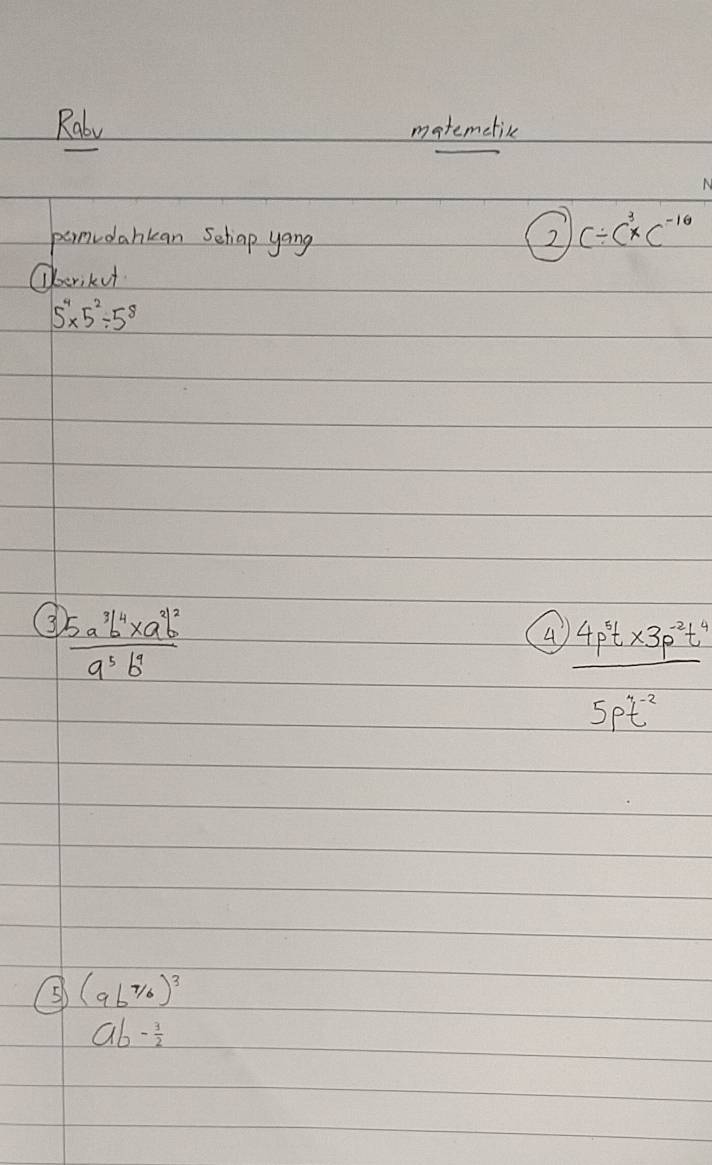 Rabu matematik
N
permudahkan setiap yang
① berikut.
5⁴ × 5² ÷ 5⁸
② c ÷ c³ × c⁻¹⁰
③ 5a³b⁴ × a²b²
a⁵ b⁹
④ 4p⁵t × 3p⁻²t⁴
5p⁴t⁻²
⑤ (ab⁷/⁶)³
ab - 3/2